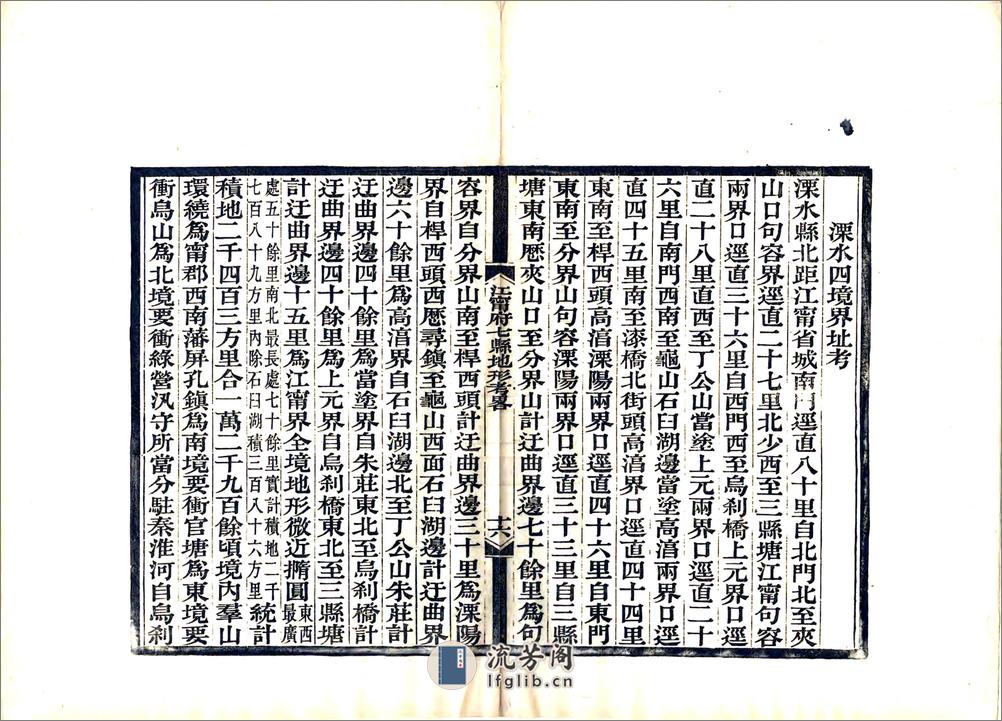 溧水四境界址考
溧水縣北距江甯省城南門逕直八十里自北門北至夾
山口句容界逕直二十七里北少西至三縣塘江甯句容
兩界口逕直三十六里自西門西至烏刹橋上元界口逕
直二十八里直西至丁公山當塗上元兩界口逕直二十
六里自南門西南至龜山石臼湖邊當塗高湻兩界口逕
直四十五里南至漆橋北街頭高湻界口逕直四十四里
東南至桿西頭高湻溧陽兩界口逕直四十六里自東門
東南至分界山句容溧陽兩界口逕直三十三里自三縣
塘東南歷夾山口至分界山計迂曲界邊七十餘里爲句
江甯府七縣地形考畧
十六
容界自分界山南至桿西頭計迂曲界邊三十里爲溧陽
界自桿西頭西歷尋鎮至龜山西面石臼湖邊計迂曲界
邊六十餘里爲高湻界自石臼湖邊北至丁公山朱莊計
迂曲界邊四十餘里爲當塗界自朱莊東北至烏刹橋計
迂曲界邊四十餘里爲上元界自烏刹橋東北至三縣塘
計迂曲界邊十五里爲江甯界全境地形微近橢圓東西最廣
處五十餘里南北最長處七十餘里實計積地二千七百八十九方里內除石臼湖積三百八十六方里統計
積地二千四百三方里合一萬二千九百餘頃境內羣山
環繞爲甯郡西南藩屏孔鎮爲南境要衝官塘爲東境要
衝烏山爲北境要衝綠營汛守所當分駐秦淮河自烏刹
流芳阁
lfglib.cn